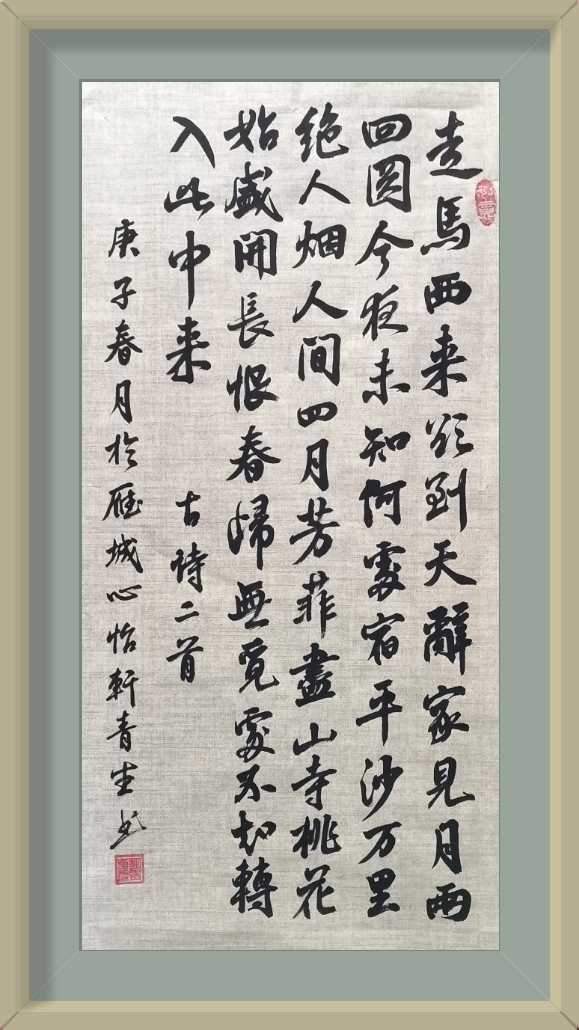 走馬西来欲到天辭家見月兩
回圓今夜未知何處宿平沙万里
绝人烟人间四月芳菲盡山寺桃花
始盛開長恨春歸無覓處不知轉
入此中来 古诗二首
庚子春月於雁城心怡軒青生书